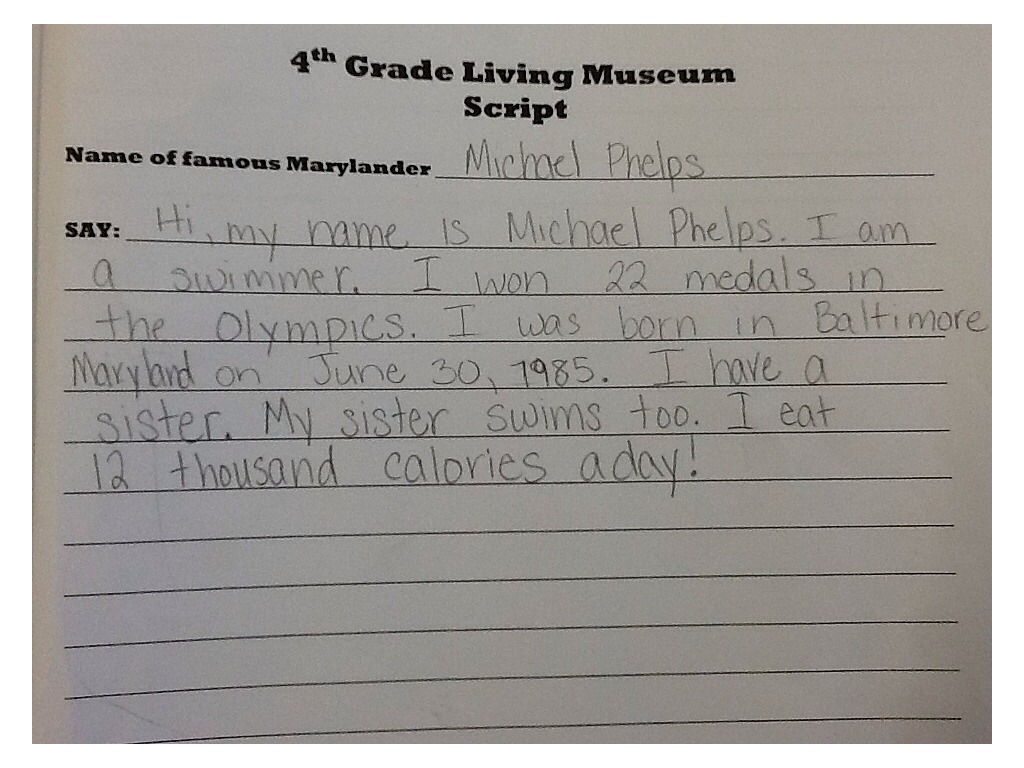 4th Grade Living Museum
Script
Name of famous Marylander Michael Phelps
SAY: Hi, my name is Michael Phelps. I am
a swimmer. I won 22 medals in
the Olympics. I was born in Baltimore
Maryland on June 30, 1985. I have a
sister. My sister swims too. I eat
12 thousand calories a day!